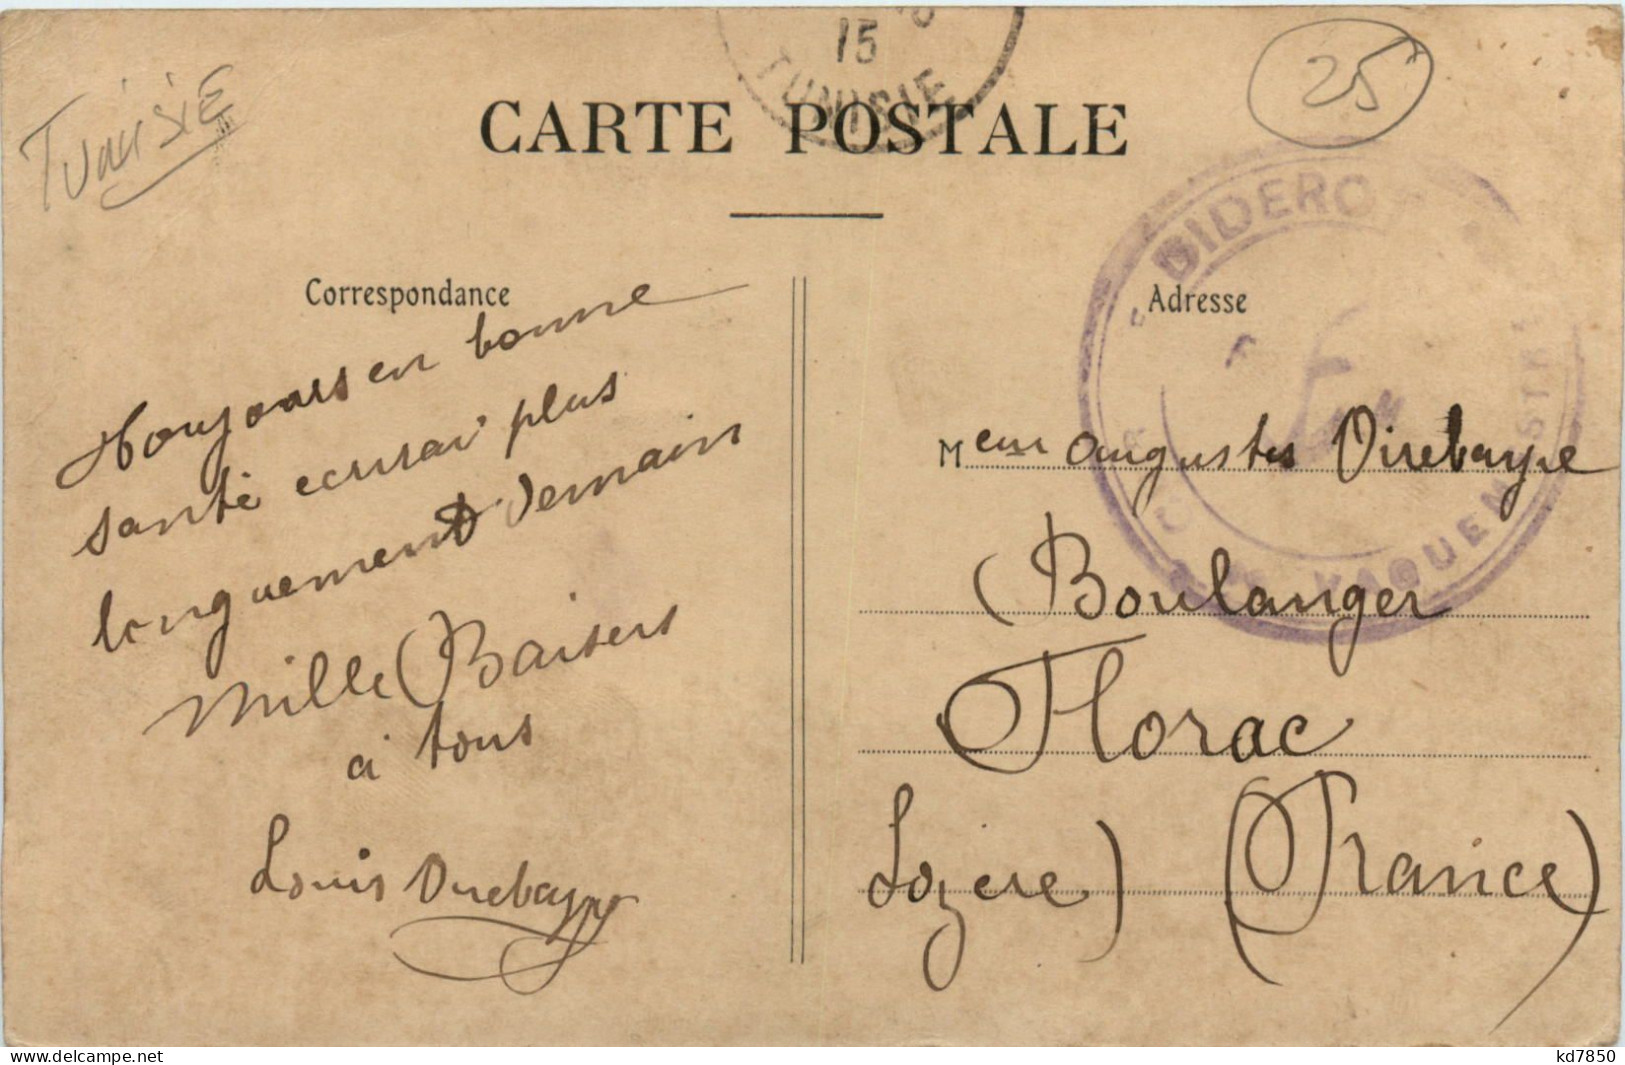 15
TUNISIE
25
TunisiE
CARTE POSTALE
"DIDERO
VAGUEMESTRE
Correspondance
Toujours en bonne
santé ecrirai plus
longuement demain
Mille Baisers
à tous
Louis Virebayre
Adresse
Meur Augustes Virebayre
Boulanger
Florac
Lozère) (France)
delcampe.net
kd7850